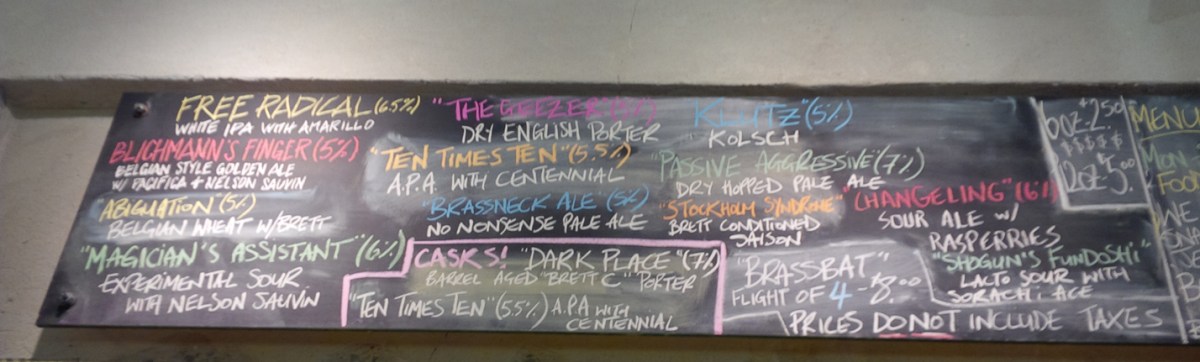 FREE RADICAL (6.5%)
WHITE IPA WITH AMARILLO
BLICHMANN'S FINGER (5%)
BELGIAN STYLE GOLDEN ALE
W/ PACIFICA + NELSON SAUVIN
ABIGUATION (5%)
BELGIAN WHEAT W/BRETT
"MAGICIAN'S ASSISTANT" (6%)
EXPERIMENTAL SOUR
WITH NELSON SAUVIN
"THE GEEZER"
DRY ENGLISH PORTER
"TEN TIMES TEN" (5.5%)
A.P.A. WITH CENTENNIAL
"BRASSNECK ALE (5%)
NO NONSENSE PALE ALE
CASKS! "DARK PLACE" (7%)
BARREL AGED "BRETT C" PORTER
"TEN TIMES TEN" (5.5%) A.P.A WITH
CENTENNIAL
KLUTZ (5%)
KOLSCH
"PASSIVE AGGRESSIVE" (7%)
DRY HOPPED PALE ALE
"STOCKHOLM SYNDROME"
BRETT CONDITIONED
SAISON
"CHANGELING" (6%)
SOUR ALE W/
RASPERRIES
"BRASSBAT"
FLIGHT OF 4 - 8.00
"SHOGUN'S FUNDOSHI"
LACTO SOUR WITH
SORACHI ACE
PRICES DO NOT INCLUDE TAXES
6OZ: 2.50
$$$$$
12OZ: 5.00
MENU
MON
FOO